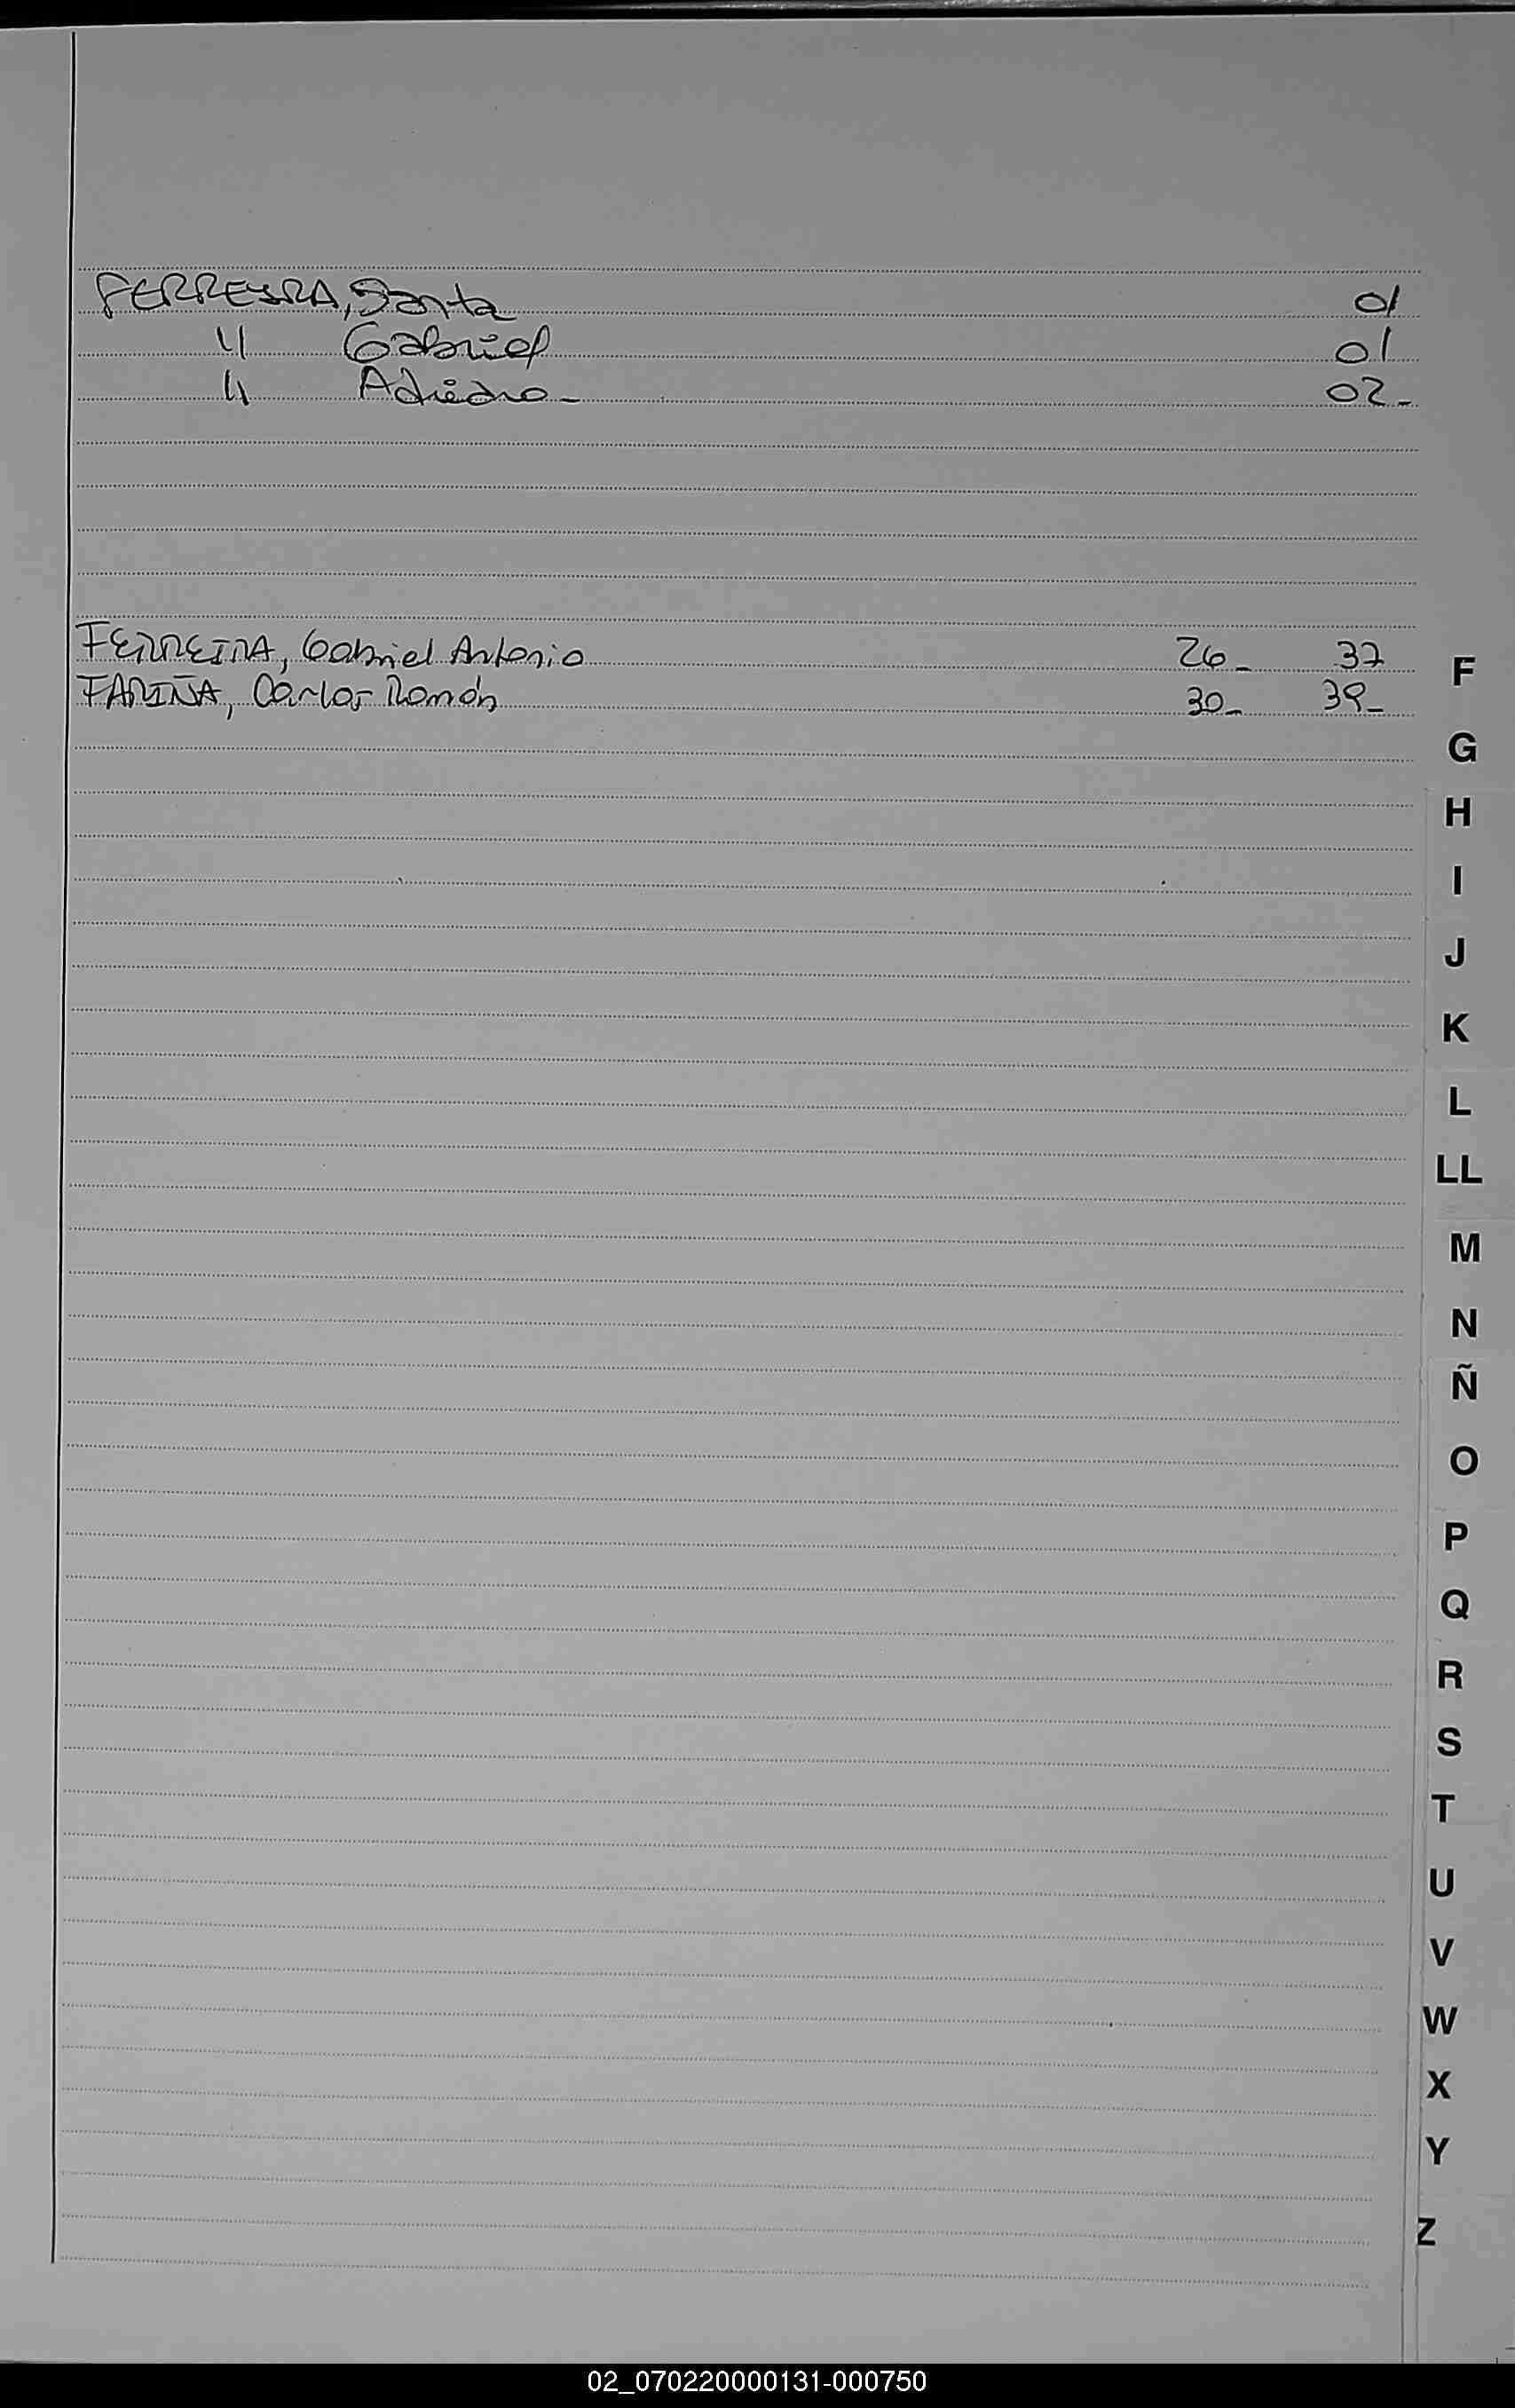 FERREYRA, Santa 01
" Gabriel 01
" 02-
FERREIRA, Gabriel Antonio 26- 37
FARIÑA, Carlos Ramón 30- 39-
F
G
H
I
J
K
L
LL
M
N
Ñ
O
P
Q
R
S
T
U
V
W
X
Y
Z
02_070220000131-000750